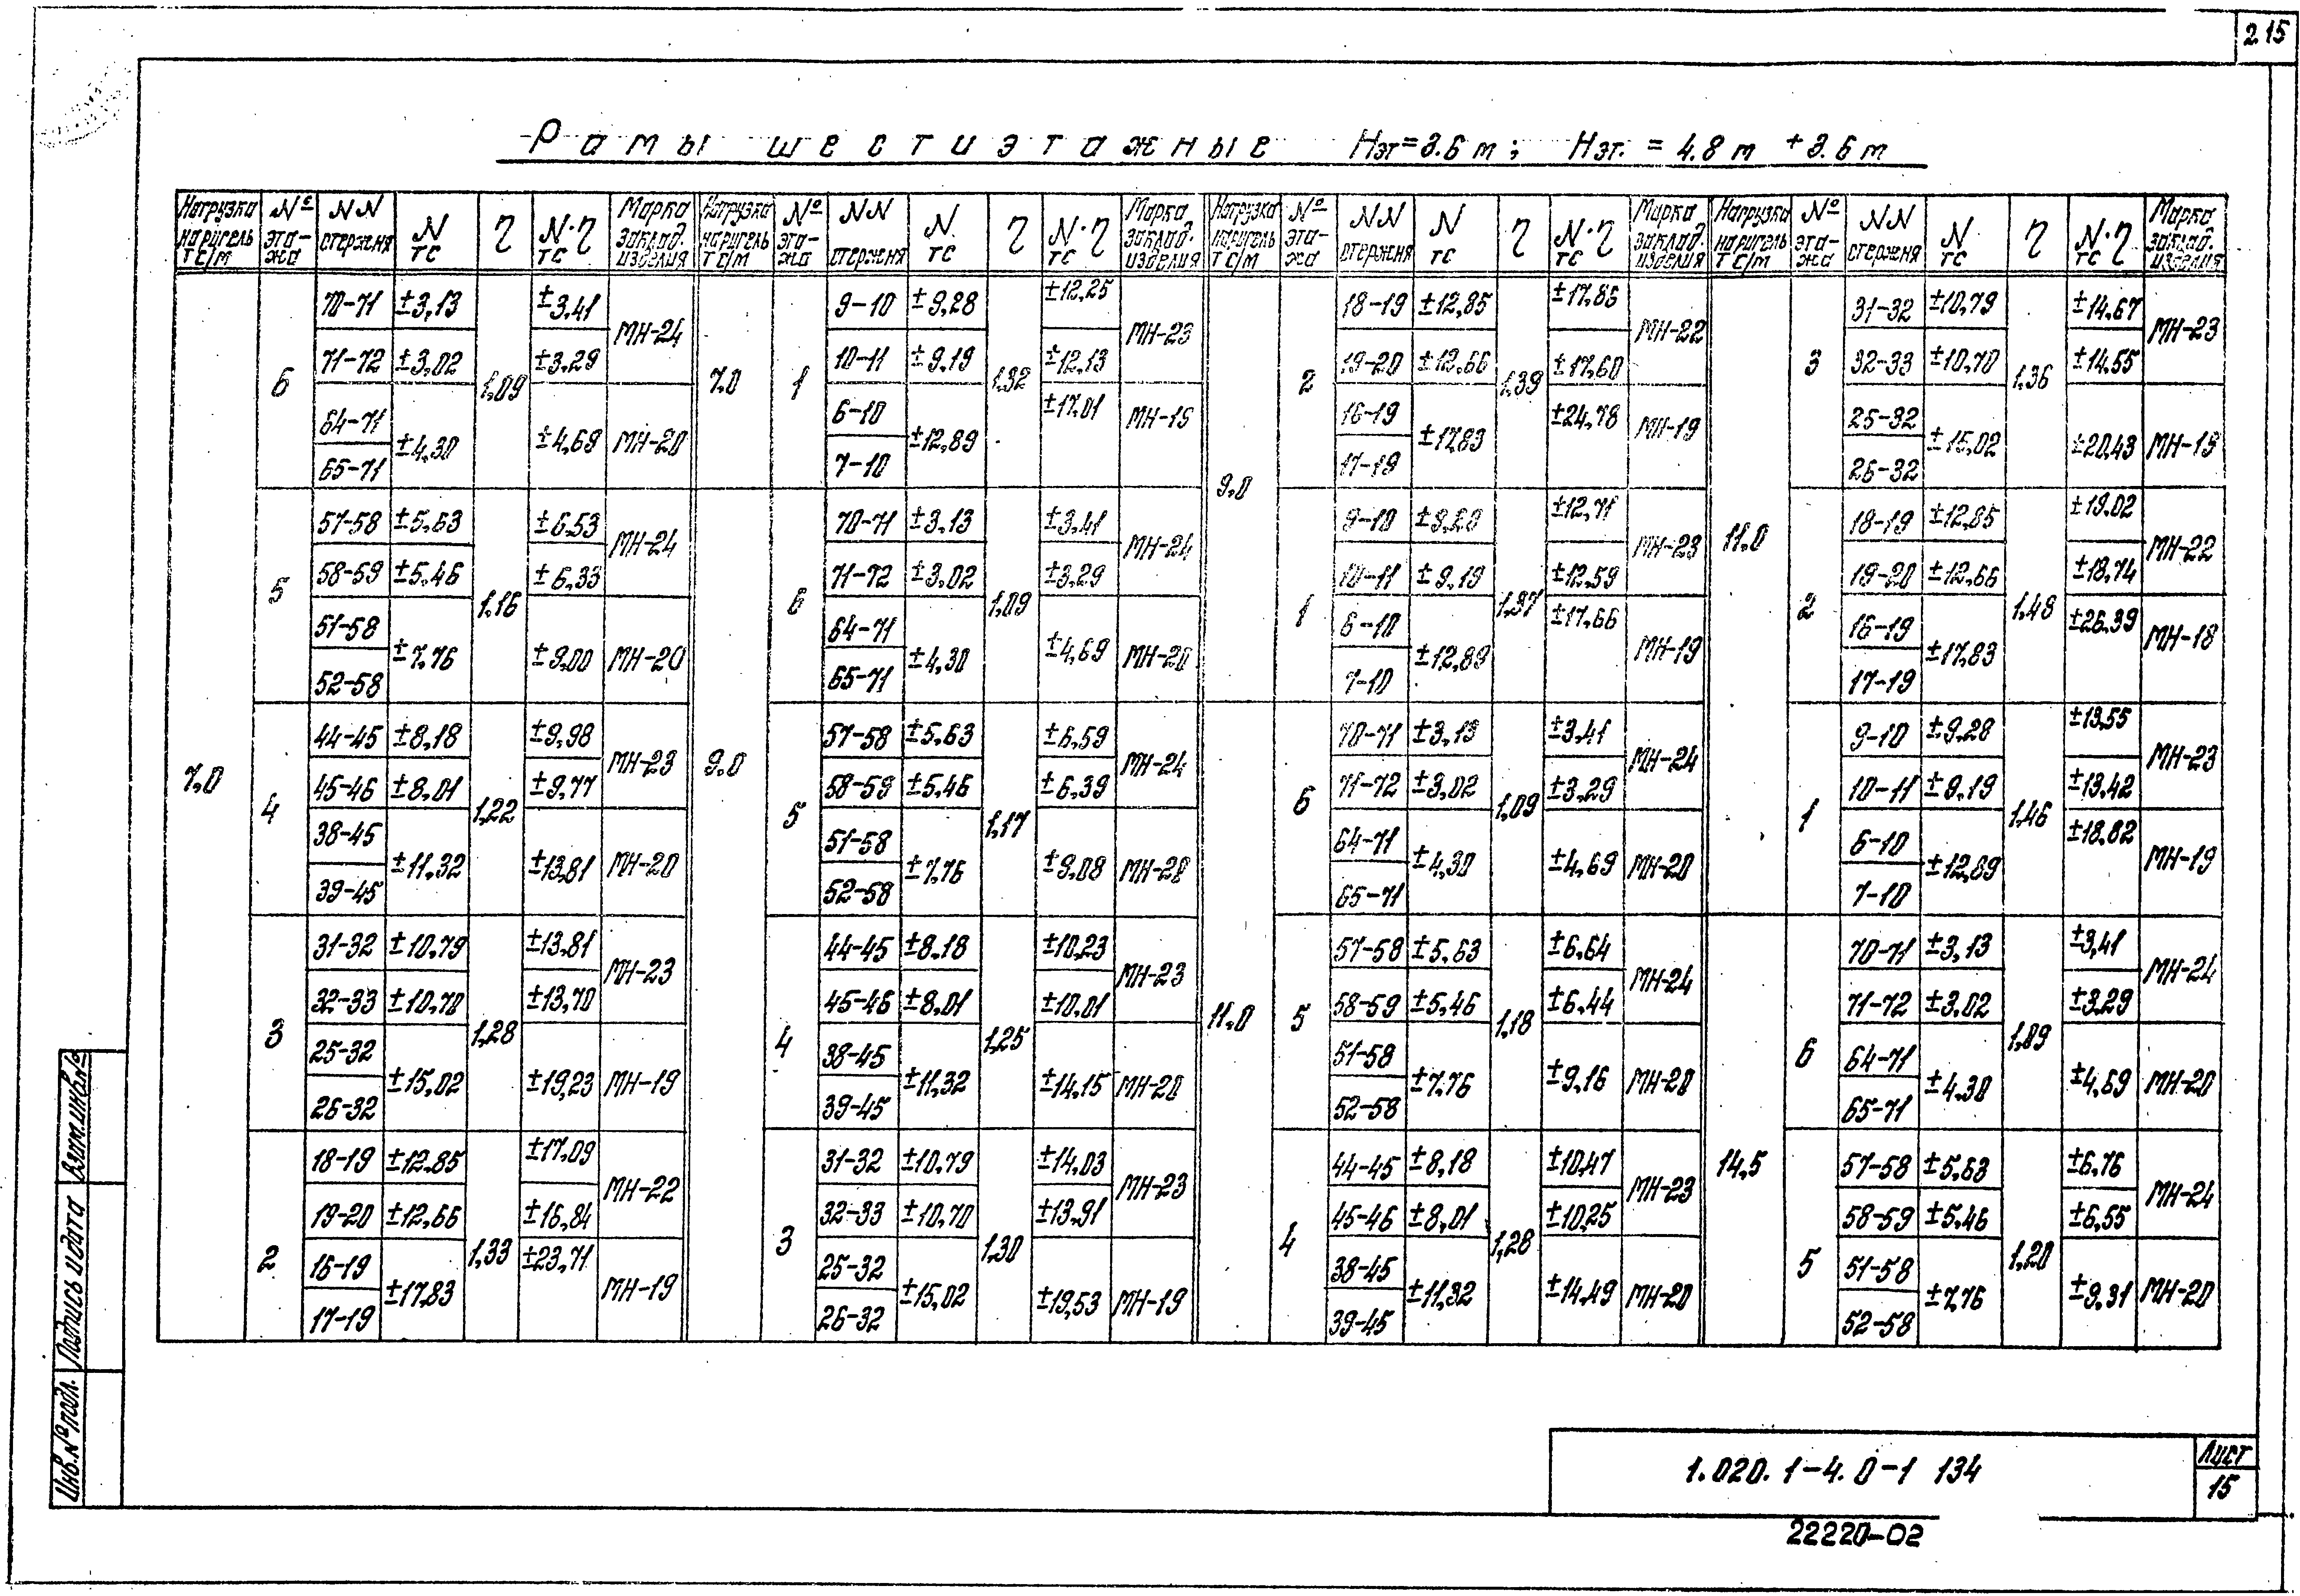 215
Рамы шестиэтажные Нэт=3.6 m; Нэт. = 4.8 m + 3.6 m
Нагрузка на ригель тс/м | № эта-жа | NN стержня | N тс | η | N·η тс | Марка заклад. изделия
7,0 | 6 | 70-71 | ±3,13 | 1,09 | ±3,41 | МН-24
71-72 | ±3,02 | ±3,29
64-71 | ±4,30 | ±4,69 | МН-20
65-71
5 | 57-58 | ±5,63 | 1,16 | ±6,53 | МН-24
58-59 | ±5,46 | ±6,33
51-58 | ±7,76 | ±9,00 | МН-20
52-58
4 | 44-45 | ±8,18 | 1,22 | ±9,98 | МН-23
45-46 | ±8,01 | ±9,77
38-45 | ±11,32 | ±13,81 | МН-20
39-45
3 | 31-32 | ±10,79 | 1,28 | ±13,81 | МН-23
32-33 | ±10,70 | ±13,70
25-32 | ±15,02 | ±19,23 | МН-19
26-32
2 | 18-19 | ±12,85 | 1,33 | ±17,09 | МН-22
19-20 | ±12,66 | ±16,84
16-19 | ±17,83 | ±23,71 | МН-19
17-19
Нагрузка на ригель тс/м | № эта-жа | NN стержня | N тс | η | N·η тс | Марка заклад. изделия
7,0 | 1 | 9-10 | ±9,28 | 1,32 | ±12,25 | МН-23
10-11 | ±9,19 | ±12,13
6-10 | ±12,89 | ±17,01 | МН-19
7-10
9,0 | 6 | 70-71 | ±3,13 | 1,09 | ±3,41 | МН-24
71-72 | ±3,02 | ±3,29
64-71 | ±4,30 | ±4,69 | МН-20
65-71
5 | 57-58 | ±5,63 | 1,17 | ±6,59 | МН-24
58-59 | ±5,46 | ±6,39
51-58 | ±7,76 | ±9,08 | МН-20
52-58
4 | 44-45 | ±8,18 | 1,25 | ±10,23 | МН-23
45-46 | ±8,01 | ±10,01
38-45 | ±11,32 | ±14,15 | МН-20
39-45
3 | 31-32 | ±10,79 | 1,30 | ±14,03 | МН-23
32-33 | ±10,70 | ±13,91
25-32 | ±15,02 | ±19,53 | МН-19
26-32
Нагрузка на ригель тс/м | № эта-жа | NN стержня | N тс | η | N·η тс | Марка заклад. изделия
9,0 | 2 | 18-19 | ±12,85 | 1,39 | ±17,86 | МН-22
19-20 | ±12,66 | ±17,60
16-19 | ±17,83 | ±24,78 | МН-19
17-19
1 | 9-10 | ±9,28 | 1,37 | ±12,71 | МН-23
10-11 | ±9,19 | ±12,59
6-10 | ±12,89 | ±17,66 | МН-19
7-10
11,0 | 6 | 70-71 | ±3,13 | 1,09 | ±3,41 | МН-24
71-72 | ±3,02 | ±3,29
64-71 | ±4,30 | ±4,69 | МН-20
65-71
5 | 57-58 | ±5,63 | 1,18 | ±6,64 | МН-24
58-59 | ±5,46 | ±6,44
51-58 | ±7,76 | ±9,16 | МН-20
52-58
4 | 44-45 | ±8,18 | 1,28 | ±10,47 | МН-23
45-46 | ±8,01 | ±10,25
38-45 | ±11,32 | ±14,49 | МН-20
39-45
Нагрузка на ригель тс/м | № эта-жа | NN стержня | N тс | η | N·η тс | Марка заклад. изделия
11,0 | 3 | 31-32 | ±10,79 | 1,36 | ±14,67 | МН-23
32-33 | ±10,70 | ±14,55
25-32 | ±15,02 | ±20,43 | МН-19
26-32
2 | 18-19 | ±12,85 | 1,48 | ±19,02 | МН-22
19-20 | ±12,66 | ±18,74
16-19 | ±17,83 | ±26,39 | МН-18
17-19
1 | 9-10 | ±9,28 | 1,46 | ±13,55 | МН-23
10-11 | ±9,19 | ±13,42
6-10 | ±12,89 | ±18,82 | МН-19
7-10
14,5 | 6 | 70-71 | ±3,13 | 1,09 | ±3,41 | МН-24
71-72 | ±3,02 | ±3,29
64-71 | ±4,30 | ±4,69 | МН-20
65-71
5 | 57-58 | ±5,63 | 1,20 | ±6,76 | МН-24
58-59 | ±5,46 | ±6,55
51-58 | ±7,76 | ±9,31 | МН-20
52-58
Инв.№ подл. Подпись и дата Взам.инв.№
1.020.1-4.0-1 134
Лист
15
22220-02